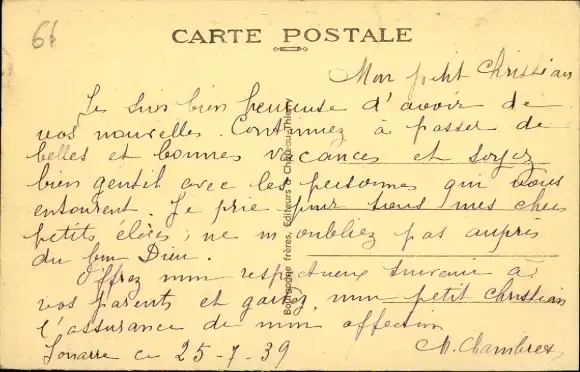 66
CARTE POSTALE
Mon petit Christian
Je suis bien heureuse d'avoir de
vos nouvelles. Continuez à passer de
belles et bonnes vacances et soyez
bien gentil avec les personnes qui vous
entourent. Je prie pour tous mes chers
petits élèves ; ne m'oubliez pas auprès
du bon Dieu.
Offrez mon respectueux souvenir à
vos parents et gardez, mon petit Christian
l'assurance de mon affection
ce 25-7-39
M. Chambres
Bourgogne frères, Editeurs à Château-Thierry